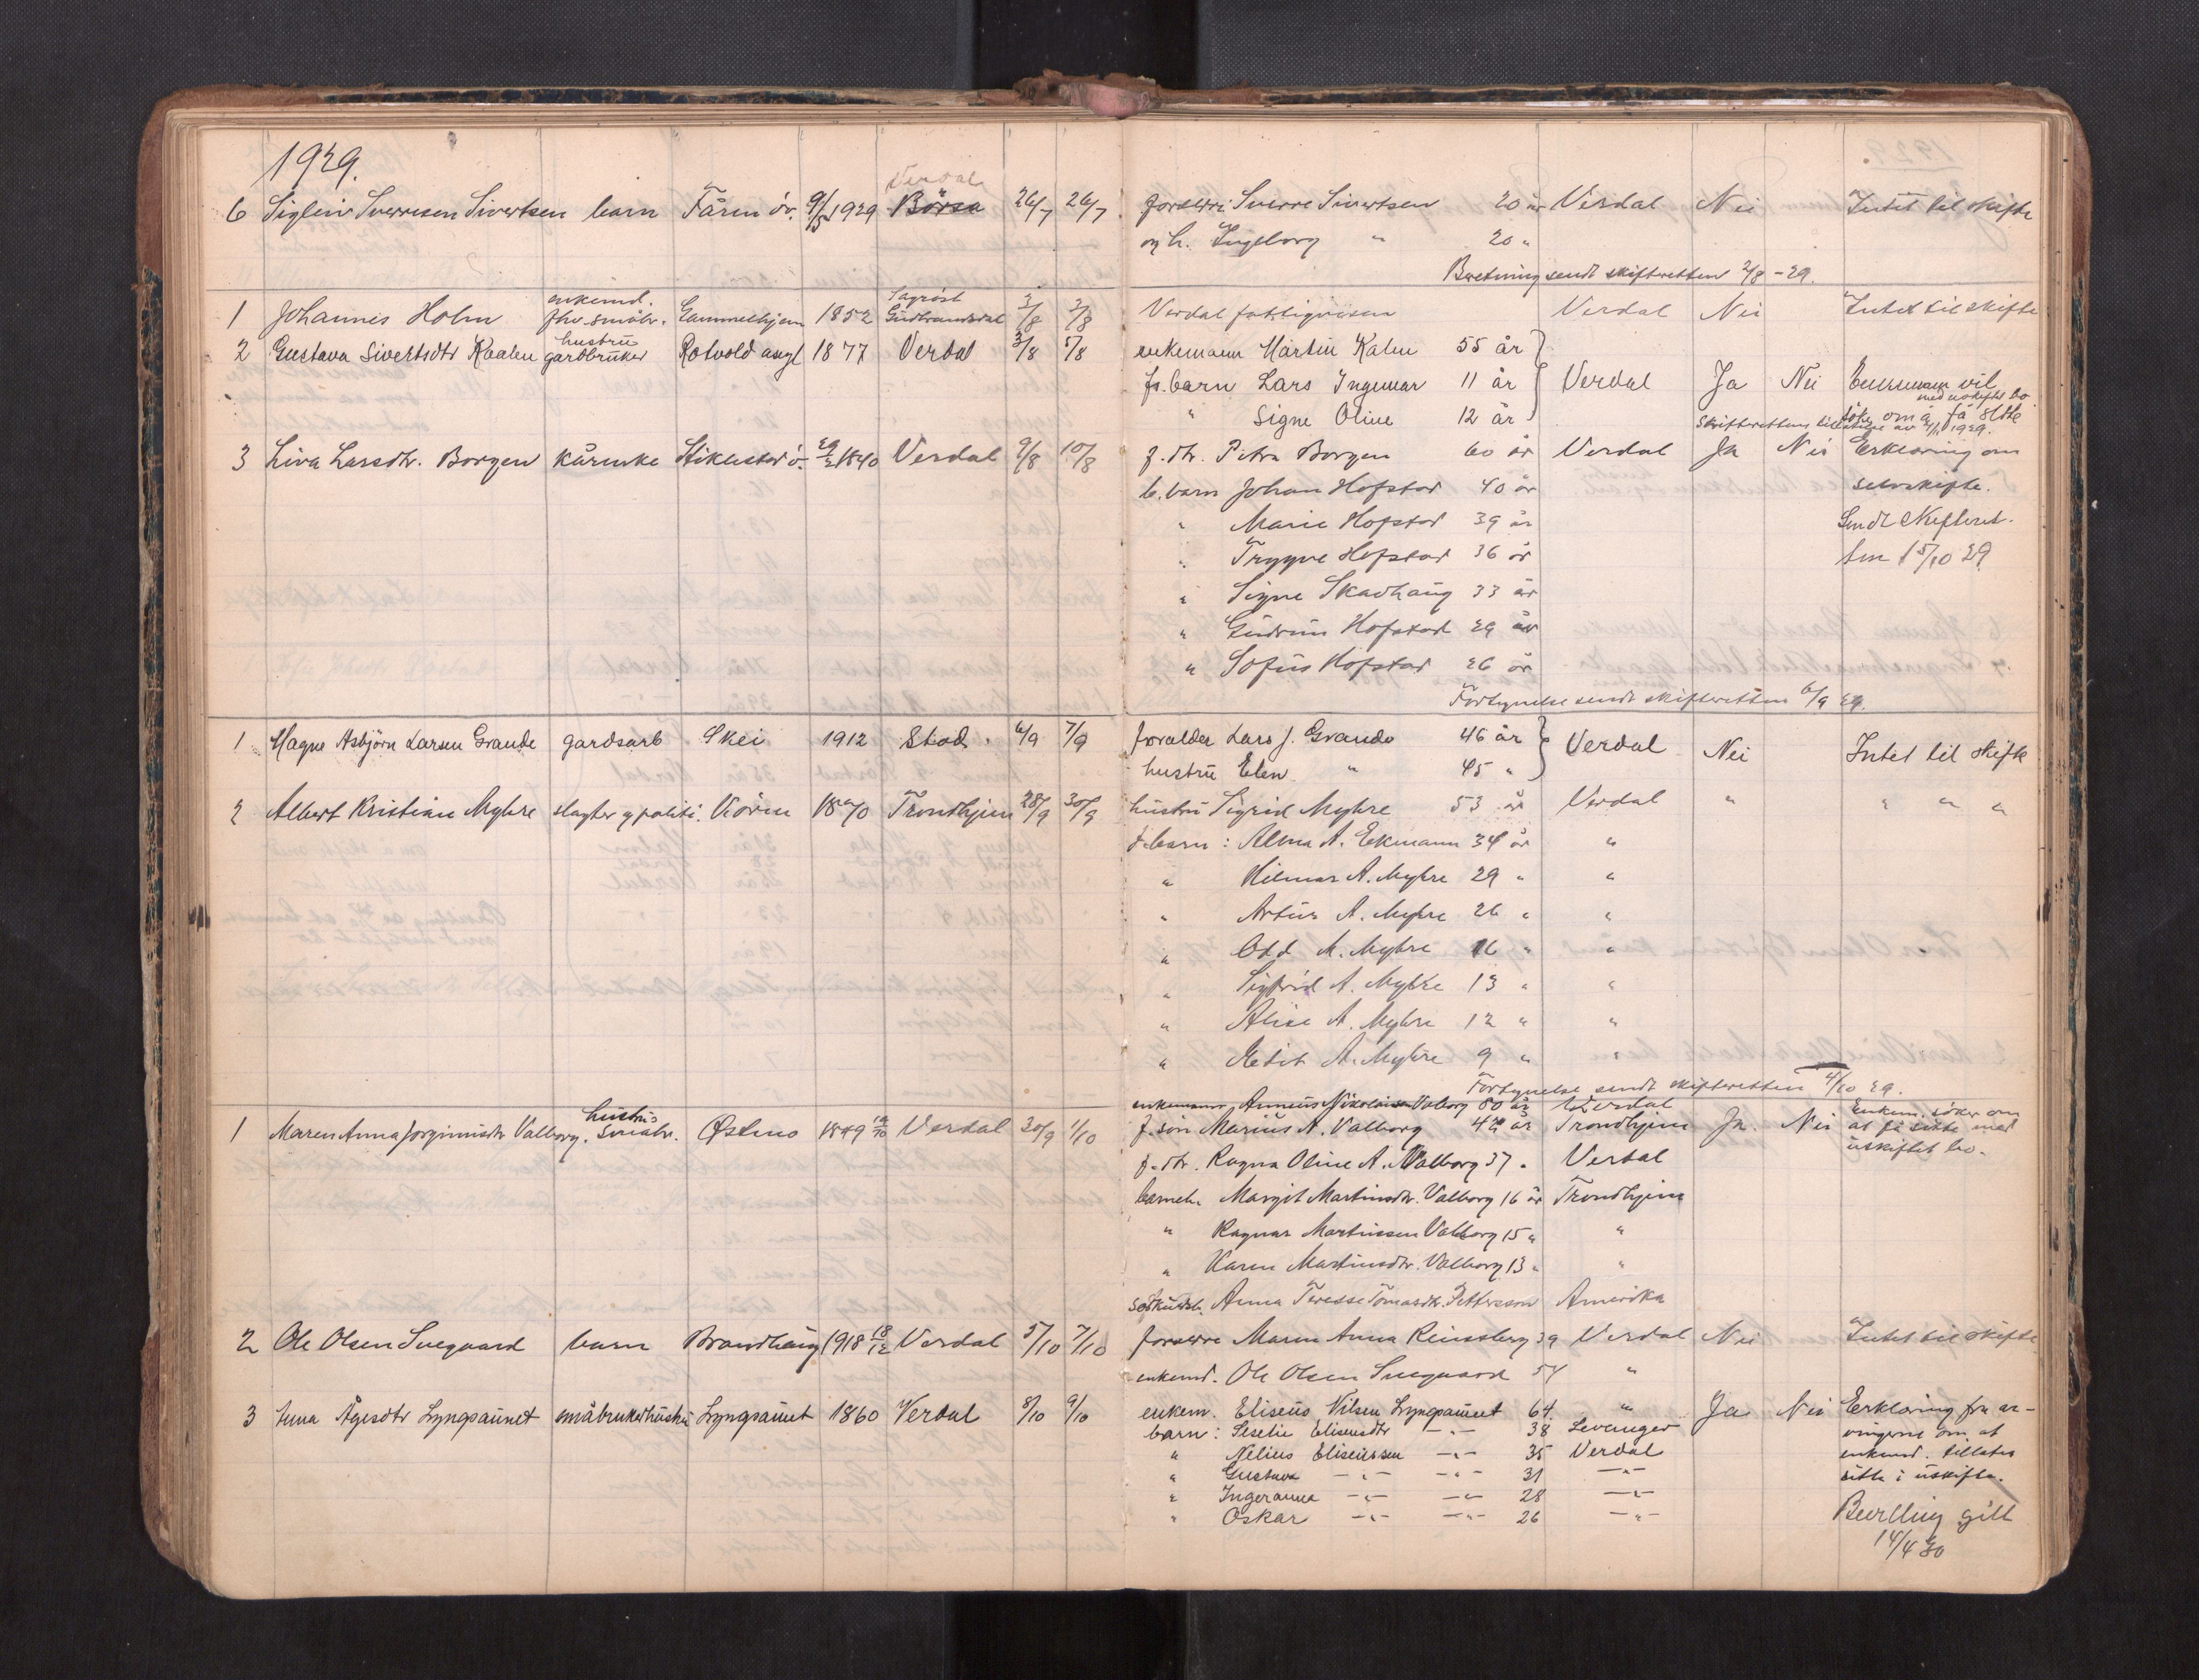 1929.
Verdal
6 Sverresen Sivertsen barn Fåren öv. 1929 Börsa 26/7 26/7 Sverre Sivertsen 20 år Verdal Nei Intet til skifte
og h. Ingeborg " 20 "
sendt skifteretten 2/8 - 29.
1 Johannes Holm enkemd. fhv. småbr. Gammelhjem 1852 Gudbrandsdal 2/8 3/8 Verdal fattigvesen Verdal Nei Intet til skifte
2 Gustava Sivertsdtr Kaalen hustru gårdbruker Rotvold 1877 Verdal 3/8 5/8 enkemann Martin Kalen 55 år
fs. barn Lars Ingemar 11 år Verdal Ja Nei Enkemann vil
med uskiftet bo
" Signe Oline 12 år söke om å få sitte
Skifterettens 1929.
3 Liva Larsdtr. Borgen kårenke Stiklestad ö. 1840 Verdal 9/8 10/8 f. dtr. Petra Borgen 60 år Verdal Ja Nei Erklæring om
b. barn Johan Hofstad 40 år selvskifte.
" Marie Hofstad 39 år Sendt skifteret-
" Trygve Hofstad 36 år ten 15/10 29
" Signe Skavhaug 33 år
" Gudrun Hofstad 29 år
" Sofus Hofstad 26 år
Fortegnelse sendt skifteretten 6/9 29.
1 Magne Asbjörn Larsen Grande gardsarb Skei 1912 Stod 6/9 7/9 forelder Lars J. Grande 46 år Verdal Nei Intet til skifte
hustru Elen " 45 "
2 Albert Kristian Myhre slagter og politi. Kören 1870 Trondhjem 28/9 30/9 hustru Sigrid Myhre 53 år Verdal " " " "
f. barn : Alma A. Eekmann 34 år "
" Hilmar A. Myhre 29 " "
" Artur A. Myhre 26 " "
" Odd A. Myhre 16 " "
" Sigfrid A. Myhre 13 " "
" Alice A. Myhre 12 " "
" Edit A. Myhre 9 " "
Fortegnelse sendt skifteretten 4/10 29.
enkemann Anneus Nikolaisen Valborg 80 år Verdal Enkem. söker om
1 Maren Anna Jorginusdtr Valborg. hustru småbr. Østmo 1849 Verdal 30/9 1/10 f. sön Marius A. Valborg år Trondhjem Ja. Nei at få sitte med
f. dtr. Ragna Oline A. Valborg 37 " Verdal uskiftet bo.
barneb. Margit Martinsdtr. Valborg 16 år Trondhjem
" Ragnar Martinsen Valborg 15 " "
" Karen Martinsdtr. Valborg 13 " "
Anna Teresse Tomasdtr. Pettersson Amerika
2 Ole Olsen Suegaard barn Brandhaug 1918 18/12 Verdal 5/10 7/10 Maren Anna Reinsberg 39 Verdal Nei Intet til skifte
enkemd. Ole Olsen Suegaard 54 "
3 Anna Ågesdtr Lyngsaunet småbrukerhustru Lyngsaunet 1860 Verdal 8/10 9/10 enkem. Eliseus Nilsen Lyngsaunet 64. " Ja Nei Erklæring fra ar-
barn : Seselie Eliseusdtr -"- 38 Levanger vingerne om at
" Nelius Eliseussen -"- 35 Verdal enkemd. tillates
" Gustava -"- -"- 31 -"- sitte i uskifte.
" Ingeranna -"- -"- 28 -"-
" Oskar -"- -"- 26 -"- Bevilling gitt
14/4 30